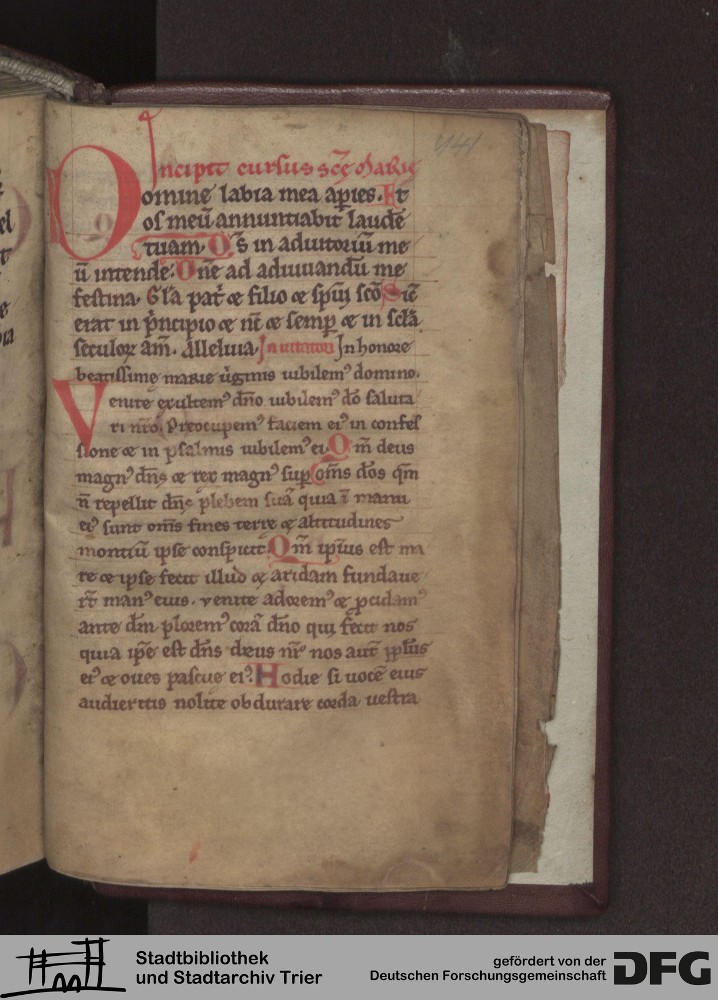 441
Incipit cursus scę Marię
Domine labia mea aꝑies. Et
os meū annuntiabit laudē
tuam. Ds in adiutoriū me
ū intende. Dne ad adiuuandū me
festina. Gła pat̓ & filio & spui scō Sic̄
erat in p̓ncipio & nc̄ & semꝑ & in sclā
seculoꝝ am̄. Alleluia. Inuitatori In honore
beatissimę marie uirginis iubilem᾽ domino.
Venite exultem᾽ dn̄o iubilem᾽ dō saluta
ri nr̄o. Preocupem᾽ faciem ei᾽ in confes
sione & in psalmis iubilem᾽ ei. Qm̄ deus
magn᾽ dn̄s & rex magn᾽ suꝑ om̄s dōs qm̄
n̄ repellit dn̄s plebem suā quia ī manu
ei᾽ sunt om̄s fines terrę & altitudines
montiū ipse conspicit. Qm̄ ipsius est ma
re & ipse fecit illud & aridam fundaue
rt̄ man᾽ eius. venite adorem᾽ & ꝓcidam᾽
ante dm̄ plorem᾽ corā dn̄o qui fecit nos
quia ipse est dn̄s deus nr̄ nos aut̄ ppl̄us
ei᾽ & oues pascue ei᾽. Hodie si uocē eius
audieritis nolite obdurare corda uestra
el
t
e
Stadtbibliothek
und Stadtarchiv Trier
gefördert von der
Deutschen Forschungsgemeinschaft
DFG